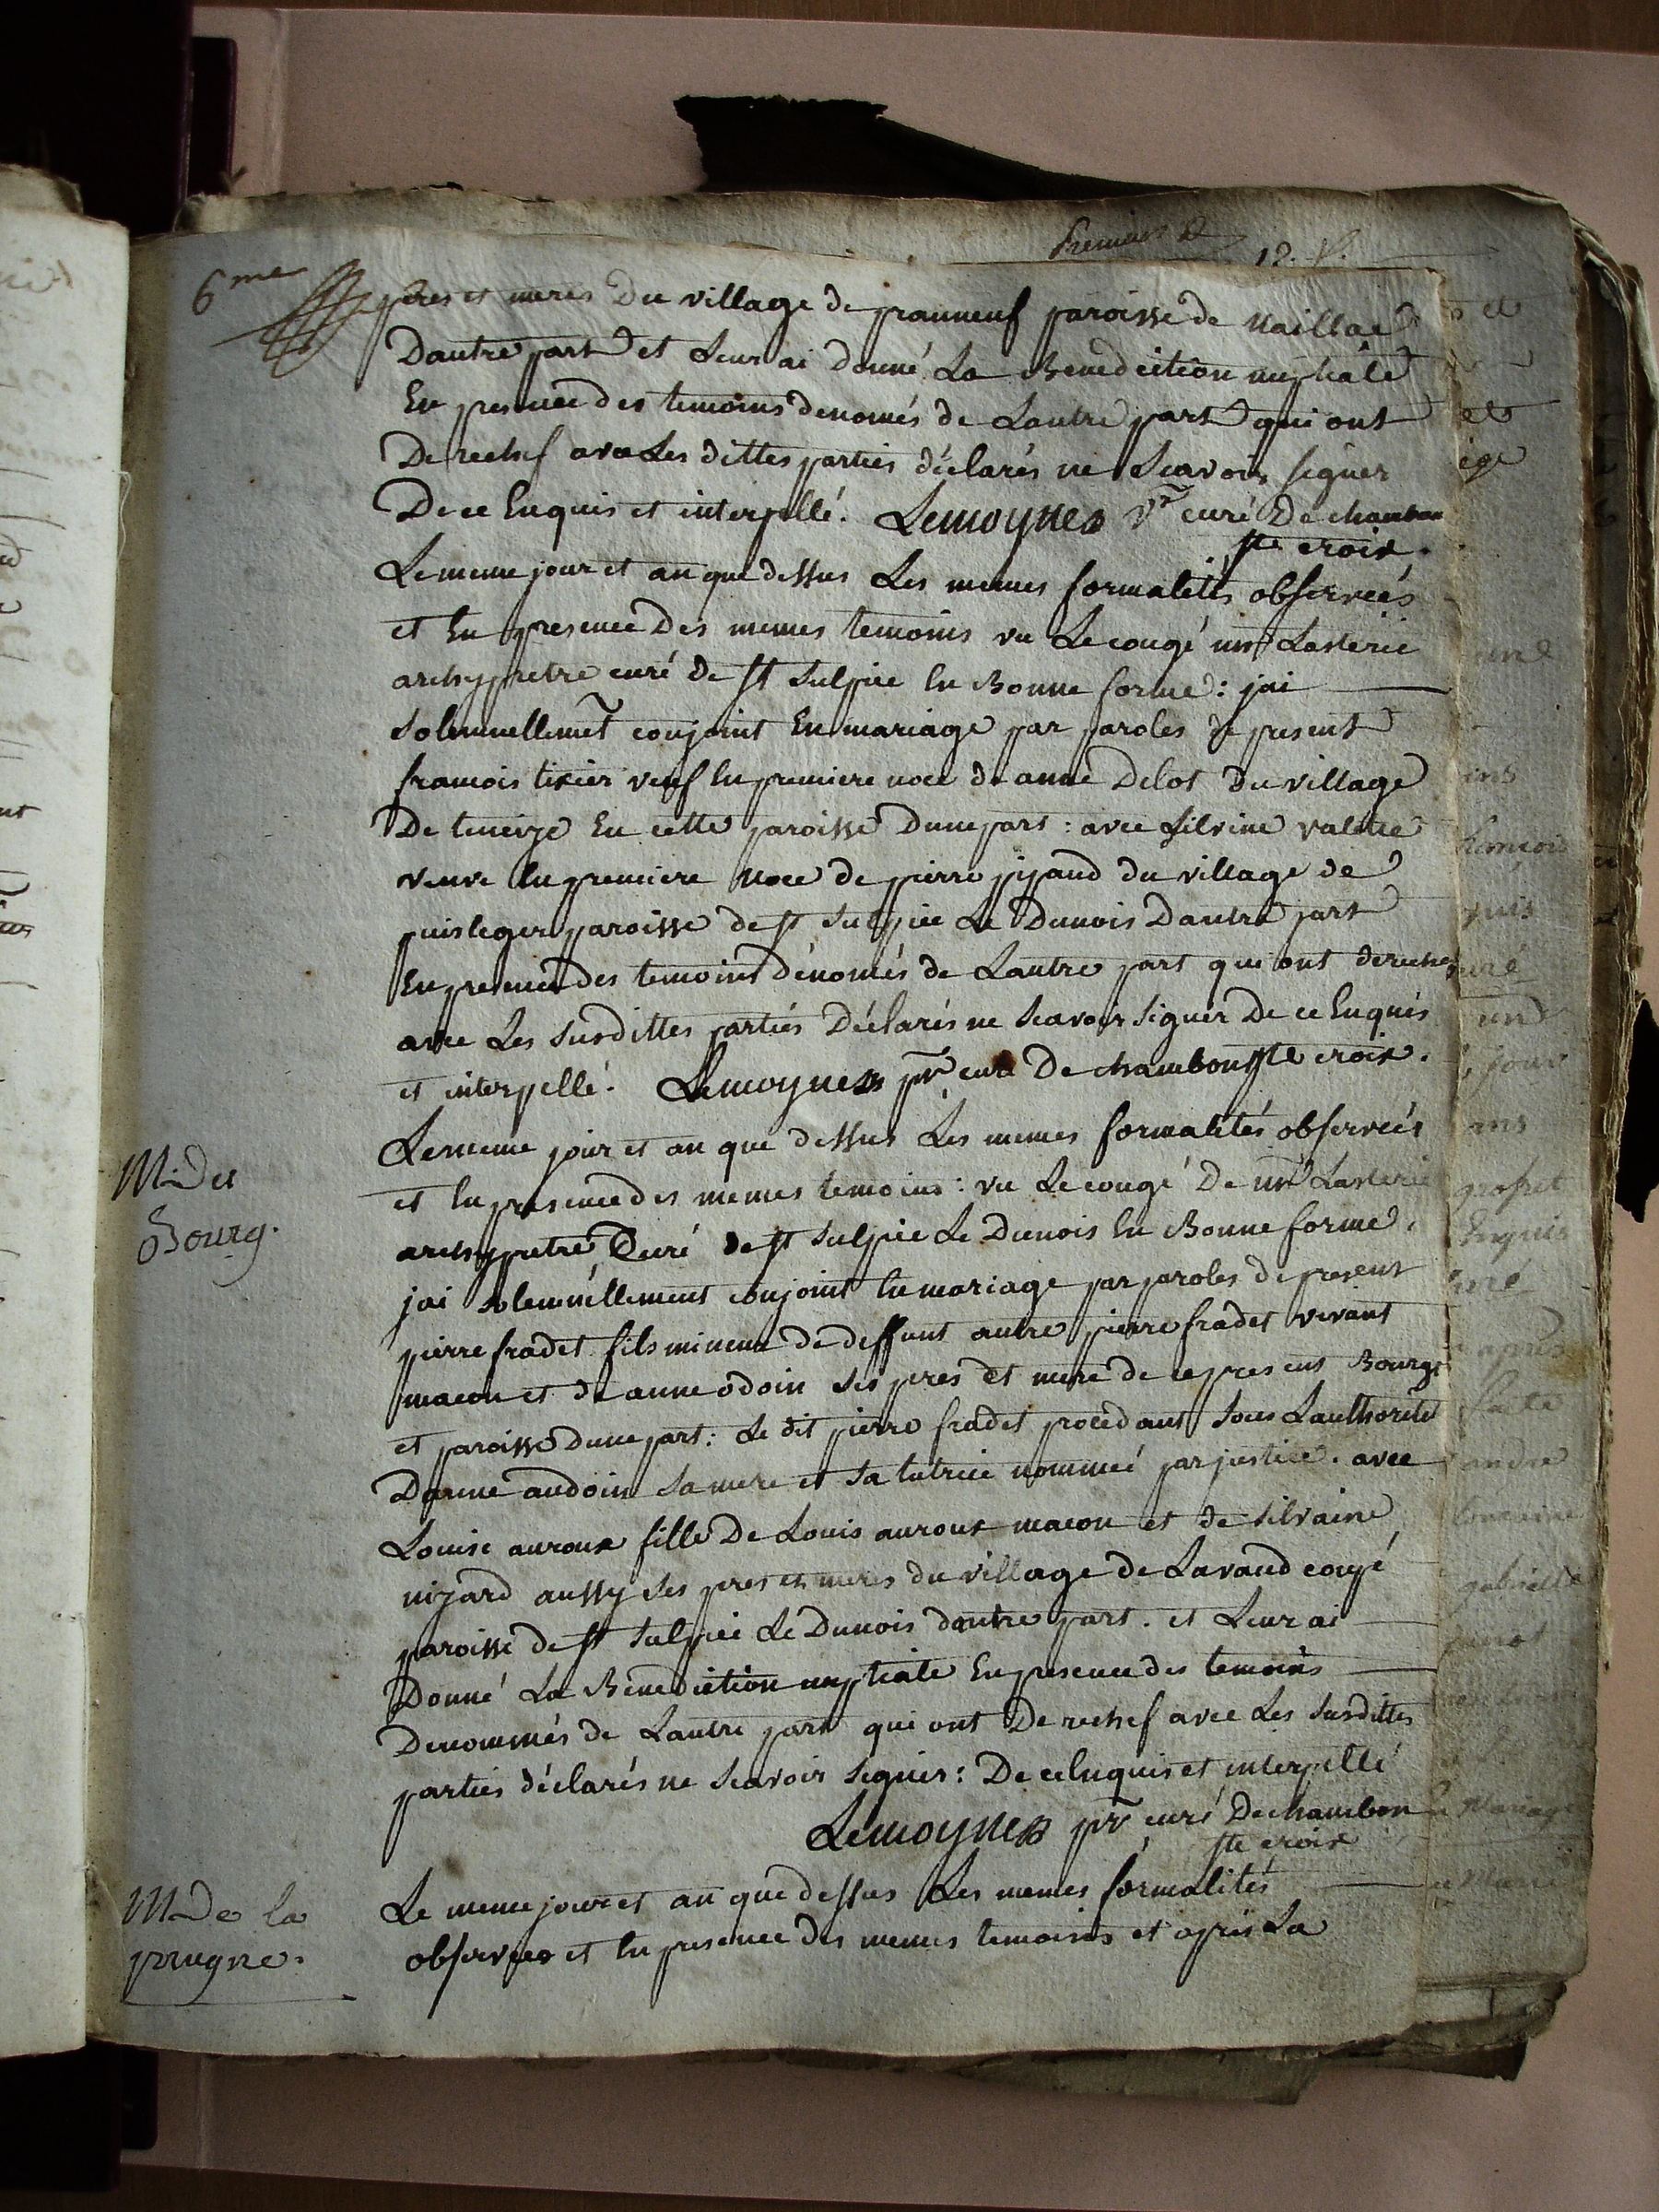 6me
peres et meres du village de pranneuf paroisse de Naillac
Dautre part et Leur ai donné La Benediction nuptiale
En presence des temoins denomés de Lautre part qui ont
De rechef avec Les dittes parties déclarés ne Scavoir signer
De ce Enquis et interpellé. Lemoyne ptr curé De chambon
ste croix.
Le meme jour et an que dessus Les memes formalités observeés
et En presence Des memes temoins vu Le congé mr Lasterie
archypretre curé de st Sulpice En Bonne forme: jai
Solemnellemt conjoint En mariage par paroles de present
francois tixier veuf En premiere noce de anne Delot du village
De teneize En cette paroisse Dune part: avec Silvine valette
veuve En premiere Noce de pierre pijaud du village de
puisleger paroisse de st Sulpice Le Dunois Dautre part
En presence des temoins dénomés de Lautre part qui ont derechef
avec Les susdittes parties Déclarés ne Scavoir signer De ce Enquis
et interpellé. Lemoyne ptr curé De chambon ste croix.
M. Du
Bourg.
Le meme jour et an que dessus Les memes formalités observeés
et En presence des memes temoins: vu Le congé De mr Lasterie
archypretre Curé de st Sulpice Le Dunois En Bonne forme.
jai solemnellement conjoint En mariage par paroles de present
pierre fradet fils mineur de deffunt autre pierre fradet vivant
macon et de anne odoin Ses peres et mere de ce present Bourg
et paroisse dune part: Le dit pierre fradet procedant sous Lauthorité
Danne audoin sa mere et sa tutrice nommeé par justice. avec
Louise auroux fille De Louis auroux macon et de Silvaine
nijard aussy Ses peres et meres du village de Lavaud coupé
paroisse de st Sulpice Le Dunois dautre part. et Leur ai
Donné La Benediction nuptiale En presence des temoins
Denommés de Lautre part qui ont De rechef avec Les susdittes
parties déclarés ne Scavoir signer: De ce Enquis et interpellé
Lemoyne ptr curé De chambon
ste croix
M. De la
prugne.
Le meme jour et an que dessus Les memes formalités
observees et En presence des memes temoins et après La